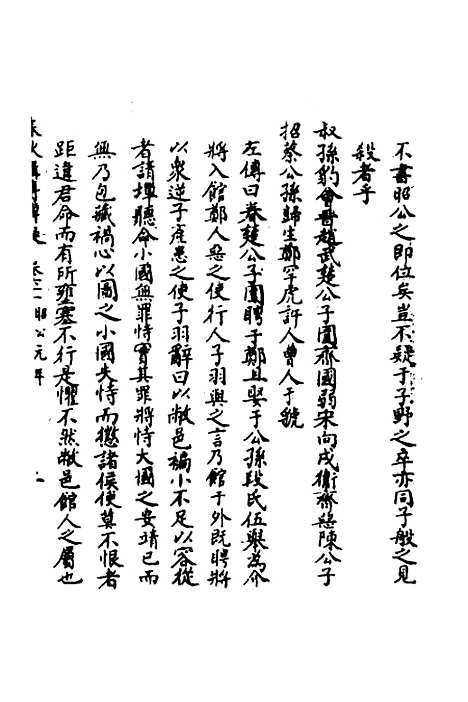 不書昭公之即位矣豈不疑于子野之卒亦同子般之見
殺者乎
叔孫豹會晉趙武楚公子圍齊國弱宋向戌衛齊惡陳公子
招蔡公孫歸生鄭罕虎許人曹人于虢
左傳曰春楚公子圍聘于鄭且娶于公孫段氏伍舉為介
將入館鄭人惡之使行人子羽與之言乃館于外既聘將
以衆逆子產患之使子羽辭曰以敝邑褊小不足以容從
者請墠聽命小國無罪恃實其罪將恃大國之安靖已而
無乃包藏禍心以圖之小國失恃而懲諸侯使莫不恨者
距違君命而有所雍塞不行是懼不然敝邑館人之屬也
昭公元年